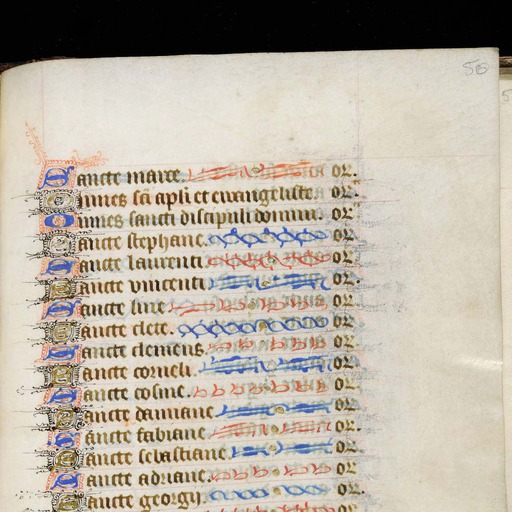 50
Sancte marce. or.
Omnes sci apli et ewangeliste. or.
Omnes sancti discipuli domini. or.
Sancte stephane. or.
Sancte laurenti. or.
Sancte vincenti. or.
Sancte line. or.
Sancte clete. or.
Sancte clemens. or.
Sancte corneli. or.
Sancte cosme. or.
Sancte damiane. or.
Sancte fabiane. or.
Sancte sebastiane. or.
Sancte adriane. or.
Sancte georgij. or.